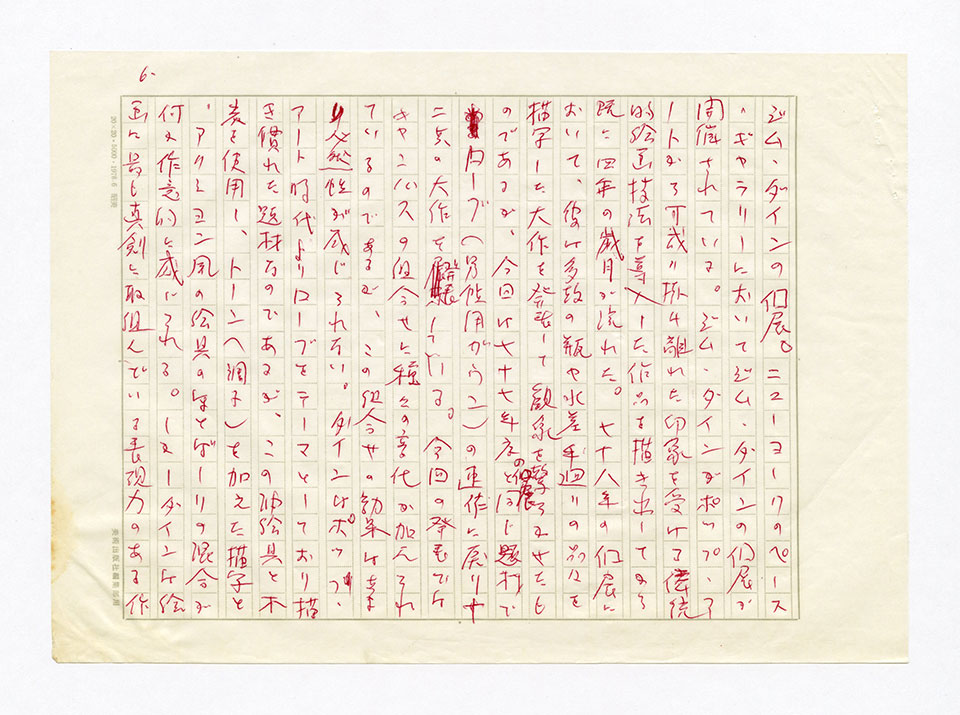 6.
ジム・ダインの個展。ニューヨークのペース
・ギャラリーに於いてジム・ダインの個展が
開催されている。ジム・ダインがポップ・ア
ートから可成り掛け離れた印象を受ける伝統
的絵画技法を導入した作品を描き出してから
既に四年の歳月が流れた。七十八年の個展に
おいて、彼は多数の瓶や水差し廻りの品々を
描写した大作を発表して観衆を驚ろかせたも
のであるが、今回は七十七年度の個展と同じ題材で
ローブ(男性用がウン)の連作に戻りや
二点の大作を展している。今回の発表では
キャンバスの組合せに種々の変化が加えられ
ているのであるが、この組合せの効果はあま
り必然性が感じられない。ダインはポップ・
アート時代よりローブをテーマとしており描
き慣れた題材なのであるが、この油絵具と木
炭を使用し、トーン(調子)を加えた描写と
、アクション風の絵具の
何も作意的に感じられる。しかしダインは絵
画に最も真剣に取組んでいる表現力のある作
20×20・5000・1978.6
美術出版社編集部用